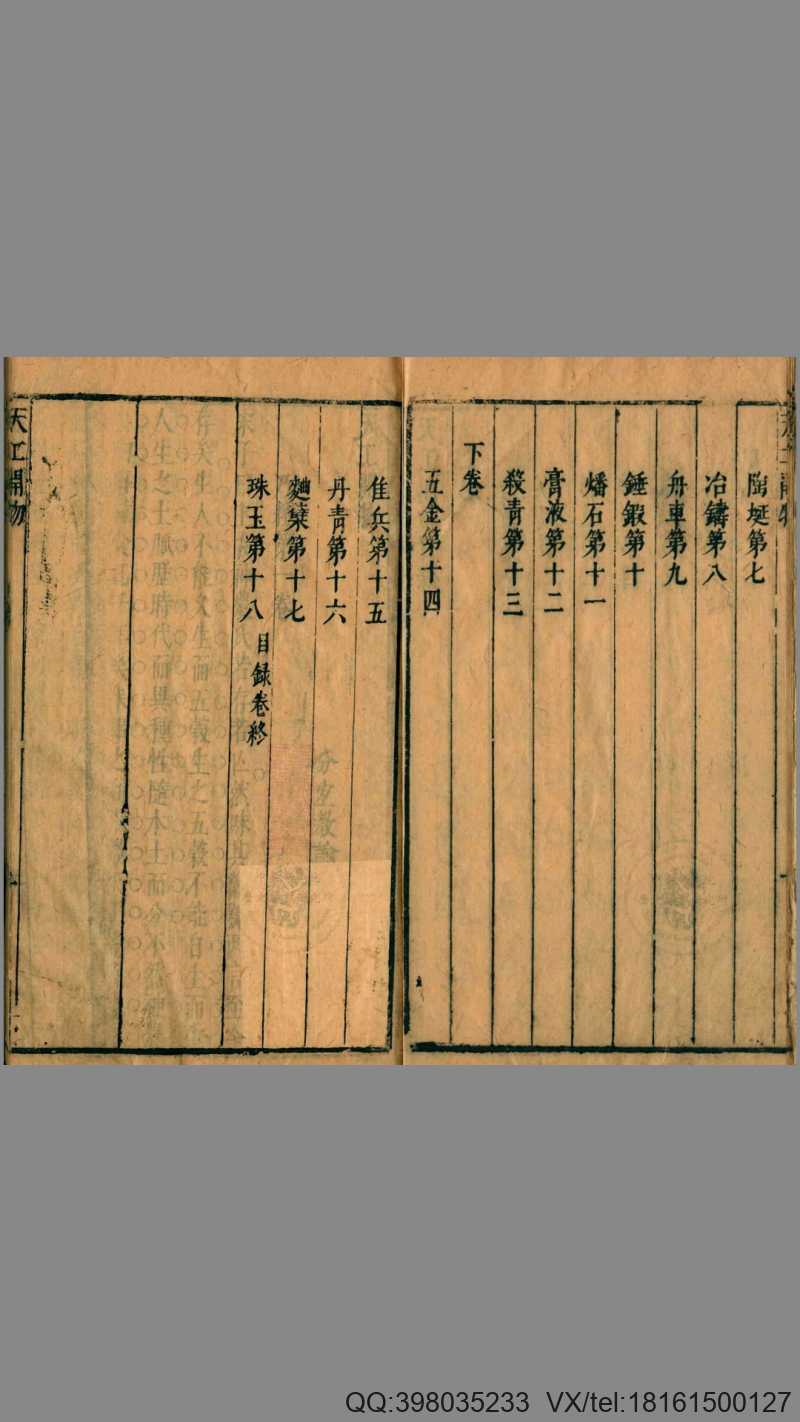 陶埏第七
冶鑄第八
舟車第九
錘鍛第十
燔石第十一
膏液第十二
殺青第十三
下卷
五金第十四
佳兵第十五
丹青第十六
麯糵第十七
珠玉第十八 目録卷終
天工開物
QQ:398035233 VX/tel:18161500127